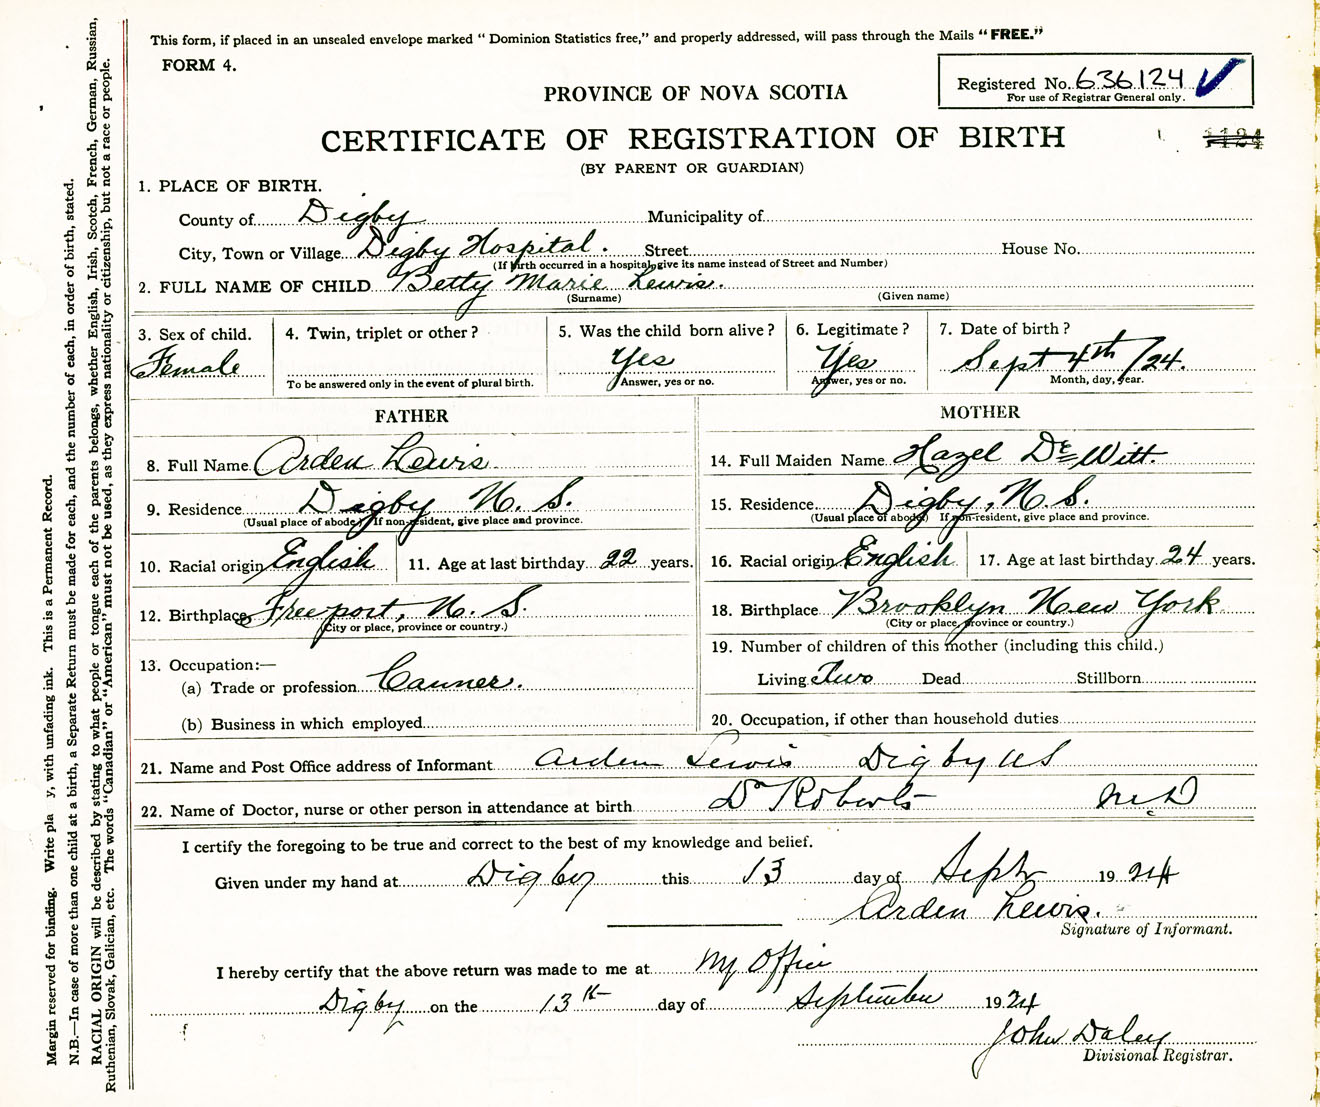 This form, if placed in an unsealed envelope marked “ Dominion Statistics free,” and properly addressed, will pass through the Mails “FREE.”
FORM 4.
Registered No. 636124
For use of Registrar General only.
PROVINCE OF NOVA SCOTIA
CERTIFICATE OF REGISTRATION OF BIRTH
1124
(BY PARENT OR GUARDIAN)
1. PLACE OF BIRTH.
County of Digby Municipality of
City, Town or Village Digby Hospital. Street House No.
(If birth occurred in a hospital, give its name instead of Street and Number)
2. FULL NAME OF CHILD Betty Marie Lewis.
(Surname) (Given name)
3. Sex of child. 4. Twin, triplet or other? 5. Was the child born alive? 6. Legitimate? 7. Date of birth?
Female Yes Yes Sept 4th/24.
To be answered only in the event of plural birth. Answer, yes or no. Answer, yes or no. Month, day, year.
FATHER MOTHER
8. Full Name Arden Lewis 14. Full Maiden Name Hazel DeWitt.
9. Residence Digby N. S. 15. Residence Digby, N. S.
(Usual place of abode) If non-resident, give place and province. (Usual place of abode) If non-resident, give place and province.
10. Racial origin English 11. Age at last birthday 22 years. 16. Racial origin English 17. Age at last birthday 24 years.
12. Birthplace Freeport, N. S. 18. Birthplace Brooklyn New York
(City or place, province or country.) (City or place, province or country.)
13. Occupation:— 19. Number of children of this mother (including this child.)
(a) Trade or profession Canner. Living Two Dead Stillborn
(b) Business in which employed 20. Occupation, if other than household duties
21. Name and Post Office address of Informant Arden Lewis Digby NS
22. Name of Doctor, nurse or other person in attendance at birth Dr Roberts M.D
I certify the foregoing to be true and correct to the best of my knowledge and belief.
Given under my hand at Digby this 13 day of Sept 1924
Arden Lewis.
Signature of Informant.
I hereby certify that the above return was made to me at My Office
Digby on the 13th day of September 1924
John Daley
Divisional Registrar.
Margin reserved for binding. Write pla y, with unfading ink. This is a Permanent Record.
N.B.—In case of more than one child at a birth, a Separate Return must be made for each, and the number of each, in order of birth, stated.
RACIAL ORIGIN will be described by stating to what people or tongue each of the parents belongs, whether English, Irish, Scotch, French, German, Russian,
Ruthenian, Slovak, Galician, etc. The words “Canadian” or “American” must not be used, as they express nationality or citizenship, but not a race or people.